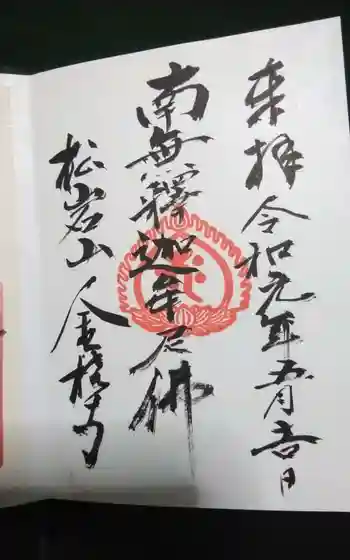 来拝 令和元年五月吉日
南無釋迦牟尼佛
松岩山 金